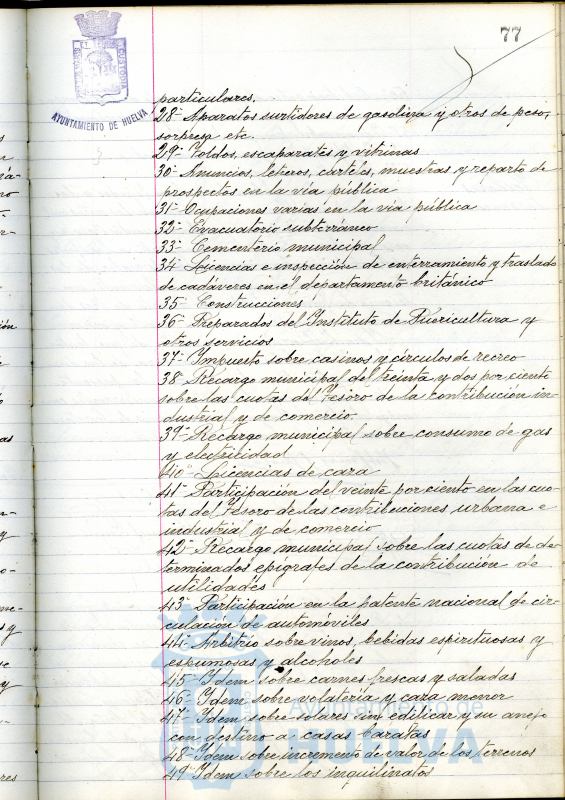 77
AYUNTAMIENTO DE HUELVA
particulares.
28- Aparatos surtidores de gasolina y otros de peso,
sorpresa etc.
29- Toldos, escaparates y vitrinas
30- Anuncios, letreros, carteles, muestras y reparto de
prospectos en la vía pública
31- Ocupaciones varias en la vía pública
32- Evacuatorio subterraneo
33- Cementerio municipal
34 Licencias e inspección de enterramiento y traslado
de cadáveres en el departamento británico
35- Construcciones
36- Preparados del Instituto de Puericultura y
otros servicios
37- Impuesto sobre casinos y círculos de recreo
38 Recargo municipal del treinta y dos por ciento
sobre las cuotas del Tesoro de la contribución in-
dustrial y de comercio.
39- Recargo municipal sobre consumo de gas
y electricidad
40- Licencias de caza
41- Participación del veinte por ciento en las cuo-
tas del Tesoro de las contribuciones urbana e
industrial y de comercio
42- Recargo municipal sobre las cuotas de de-
terminados epígrafes de la contribución de
utilidades
43- Participación en la patente nacional de cir-
culación de automóviles
44- Arbitrio sobre vinos, bebidas espirituosas y
espumosas y alcoholes
45- Idem sobre carnes frescas y saladas
46- Idem sobre volatería y caza menor
47- Idem sobre solares sin edificar y su anejo
con destino a casas baratas
48- Idem sobre incremento de valor de los terrenos
49- Idem sobre los inquilinatos
Ayuntamiento de
HUELVA